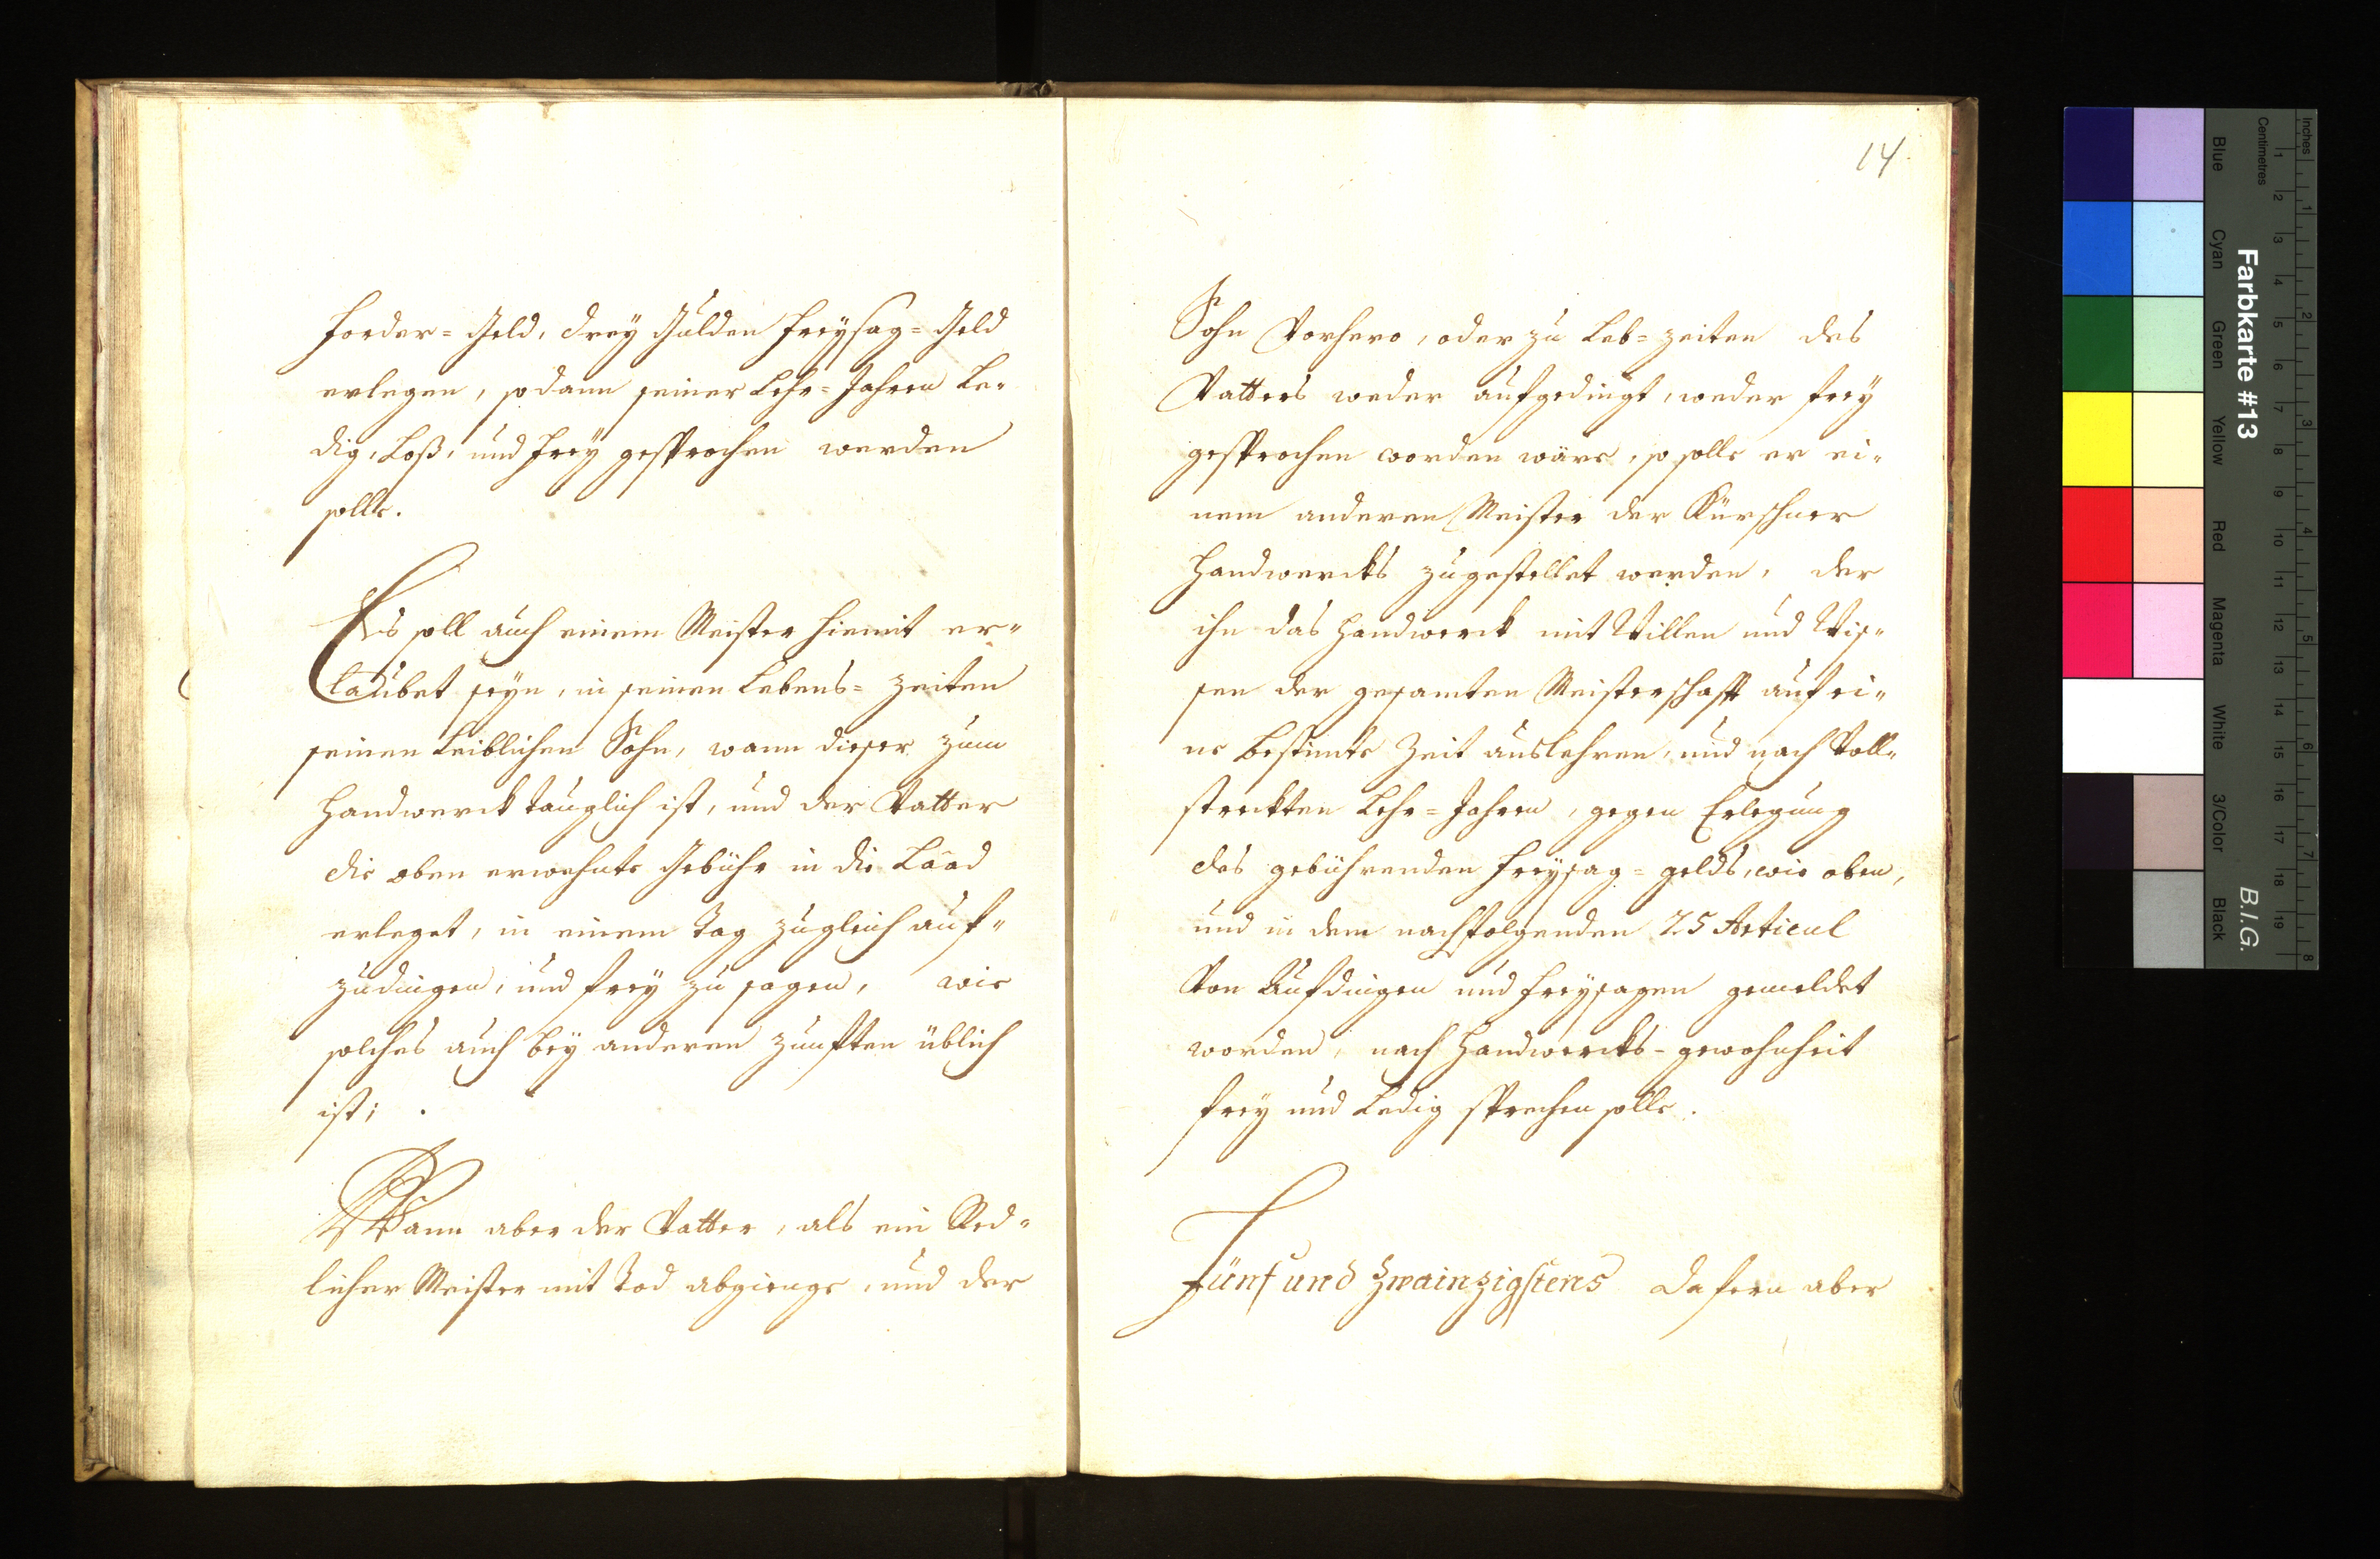 forder= Geld, drey Gulden freysag= Geld
erlegen, sodann seiner Lehr=Jahren Le„
dig, Loß, und frey gesprochen werden
solle.
Es soll auch einem Meister hiemit er„
laubet seyn, in seinen Lebens= zeiten
seinen Leiblichen Sohn, wann dieser zum
Handwerck tauglich ist, und der Vatter
die oben erwehnte Gebühr in die Laad
erleget, in einem Tag zugleich auf„
zudingen, und frey zu sagen, wie
solches auch bey anderen zunfften üblich
ist; .
Wann aber der Vatter, als ein Red„
licher Meister mit Tod abgienge, und der
14.
Sohn Vorhero, oder zu Leb=zeiten des
Vatters weder aufgedingt, weder frey
gesprochen worden wäre, so solle er ei„
nem anderen Meister der Kürschner
Handwercks zugestellet werden, der
ihn das Handwerck mit Willen und Wis„
sen der gesamten Meisterschafft auf ei„
ne bestimte Zeit auslehren, und nach Voll„
streckten Lehr=Jahren, gegen Erlegung
des gebührenden freysag=gelds, wie oben,
und in dem nachfolgenden 25 Articul
Von Aufdingen und freysagen gemeldet
worden, nach Handwercks-gewohnheit
frey und Ledig sprechen solle.
Fünf und Zwainzigstens Dafern aber
Farbkarte #13
B.I.G.
Inches
Centimetres
1 2 3 4 5 6 7 8 9 10 11 12 13 14 15 16 17 18 19
1 2 3 4 5 6 7 8
Blue
Cyan
Green
Yellow
Red
Magenta
White
3/Color
Black